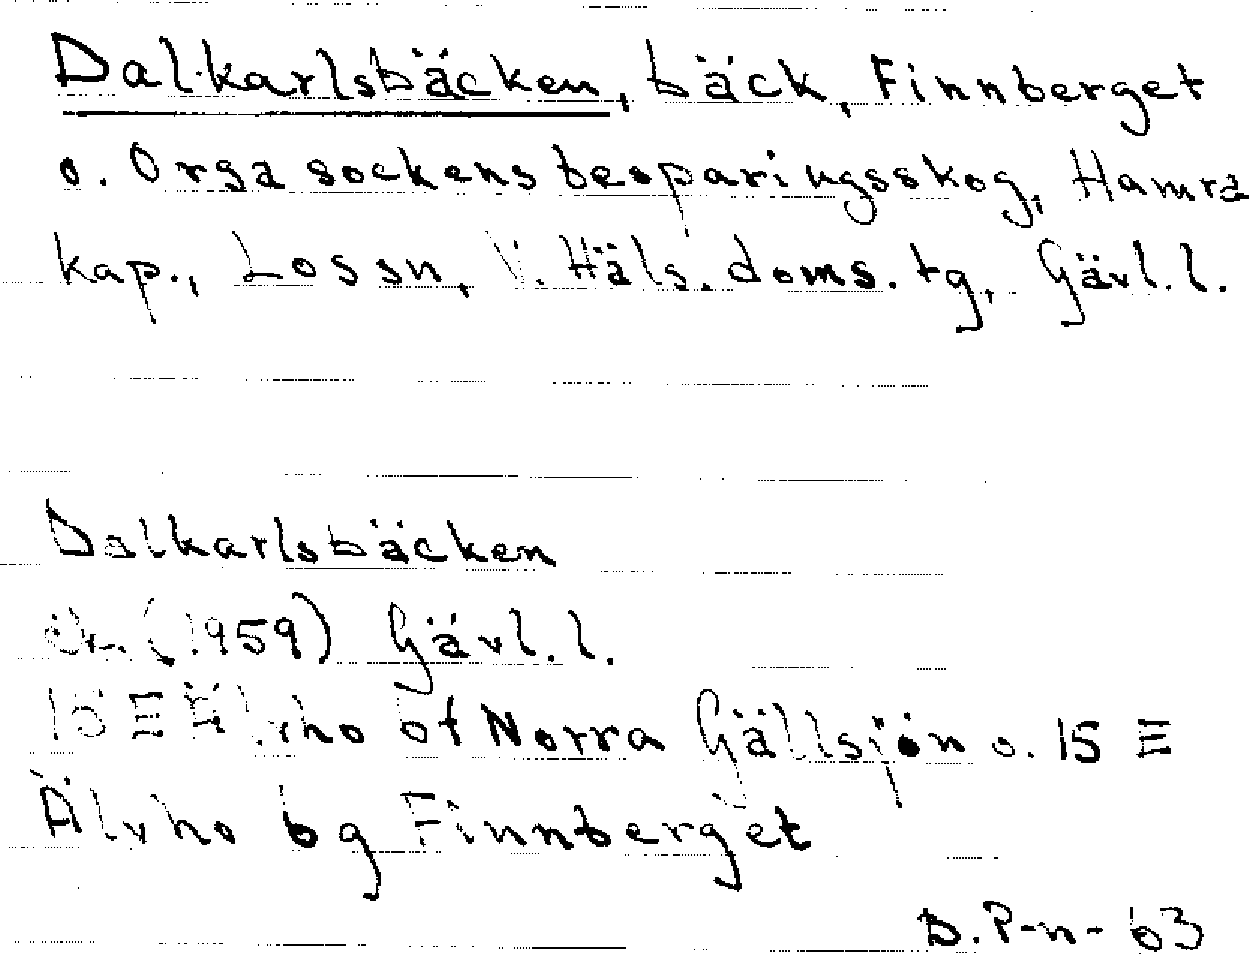 Dalkarlsbäcken, bäck, Finnberget
o. Orsa sockens besparingsskog, Hamra
kap., Lossn, V. Häls. doms. tg, Gävl. l.
Dalkarlsbäcken
(1959) Gävl. l.
15 E Älvho of Norra Gällsjön o. 15 E
Älvho bg Finnberget
D. P-n- 63